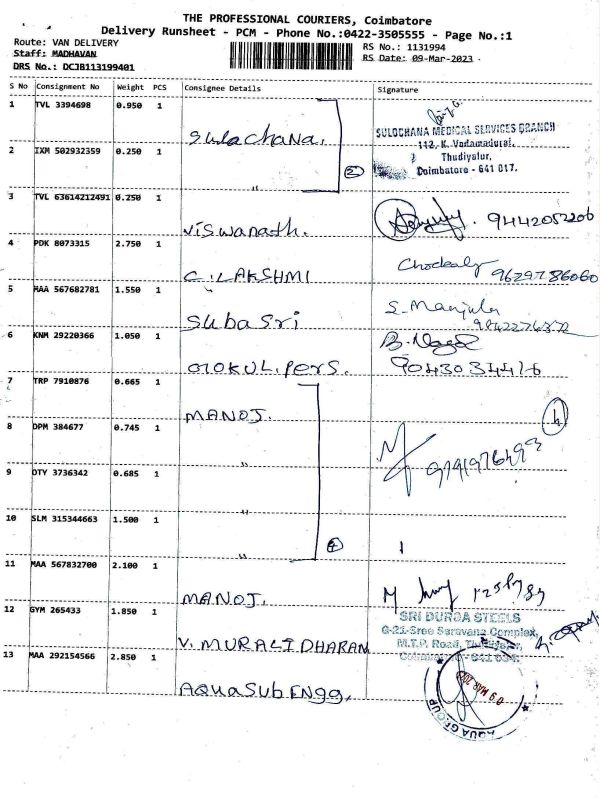 THE PROFESSIONAL COURIERS, Coimbatore
Delivery Runsheet - PCM - Phone No.:0422-3505555 - Page No.:1
Route: VAN DELIVERY
RS No.: 1131994
Staff: MADHAVAN
RS Date: 09-Mar-2023
DRS No.: DCJB113199401
S No Consignment No Weight PCS Consignee Details Signature
1 TVL 3394698 0.950 1
Sulachana.
SULOCHANA MEDICAL SERVICES BRANCH
142, K. Vadamadurai,
Thudiyalur,
Coimbatore - 641 017.
2 IXM 502932359 0.250 1
"
2
3 TVL 63614212491 0.250 1
Viswanath.
9442052206
4 PDK 8073315 2.750 1
C. LAKSHMI
9629786060
5 MAA 567682781 1.550 1
Subasri
S. Manjula
9842276372
6 KNM 29220366 1.050 1
GOKUL. Pers.
9043034416
7 TRP 7910876 0.665 1
MANOJ.
4
8 DPM 384677 0.745 1
"
9 DTY 3736342 0.685 1
"
10 SLM 315344663 1.500 1
"
4
11 MAA 567832700 2.100 1
MANOJ.
12 GYM 265433 1.850 1
V. MURALIDHARAN
SRI DURGA STEELS
G-21-Sree Saravana Complex,
M.T.P. Road, Thudiyalur,
Coimbatore - 641 034.
13 MAA 292154566 2.850 1
AQUASUB ENGG,
09 MAR 2023
AQUA GROUP